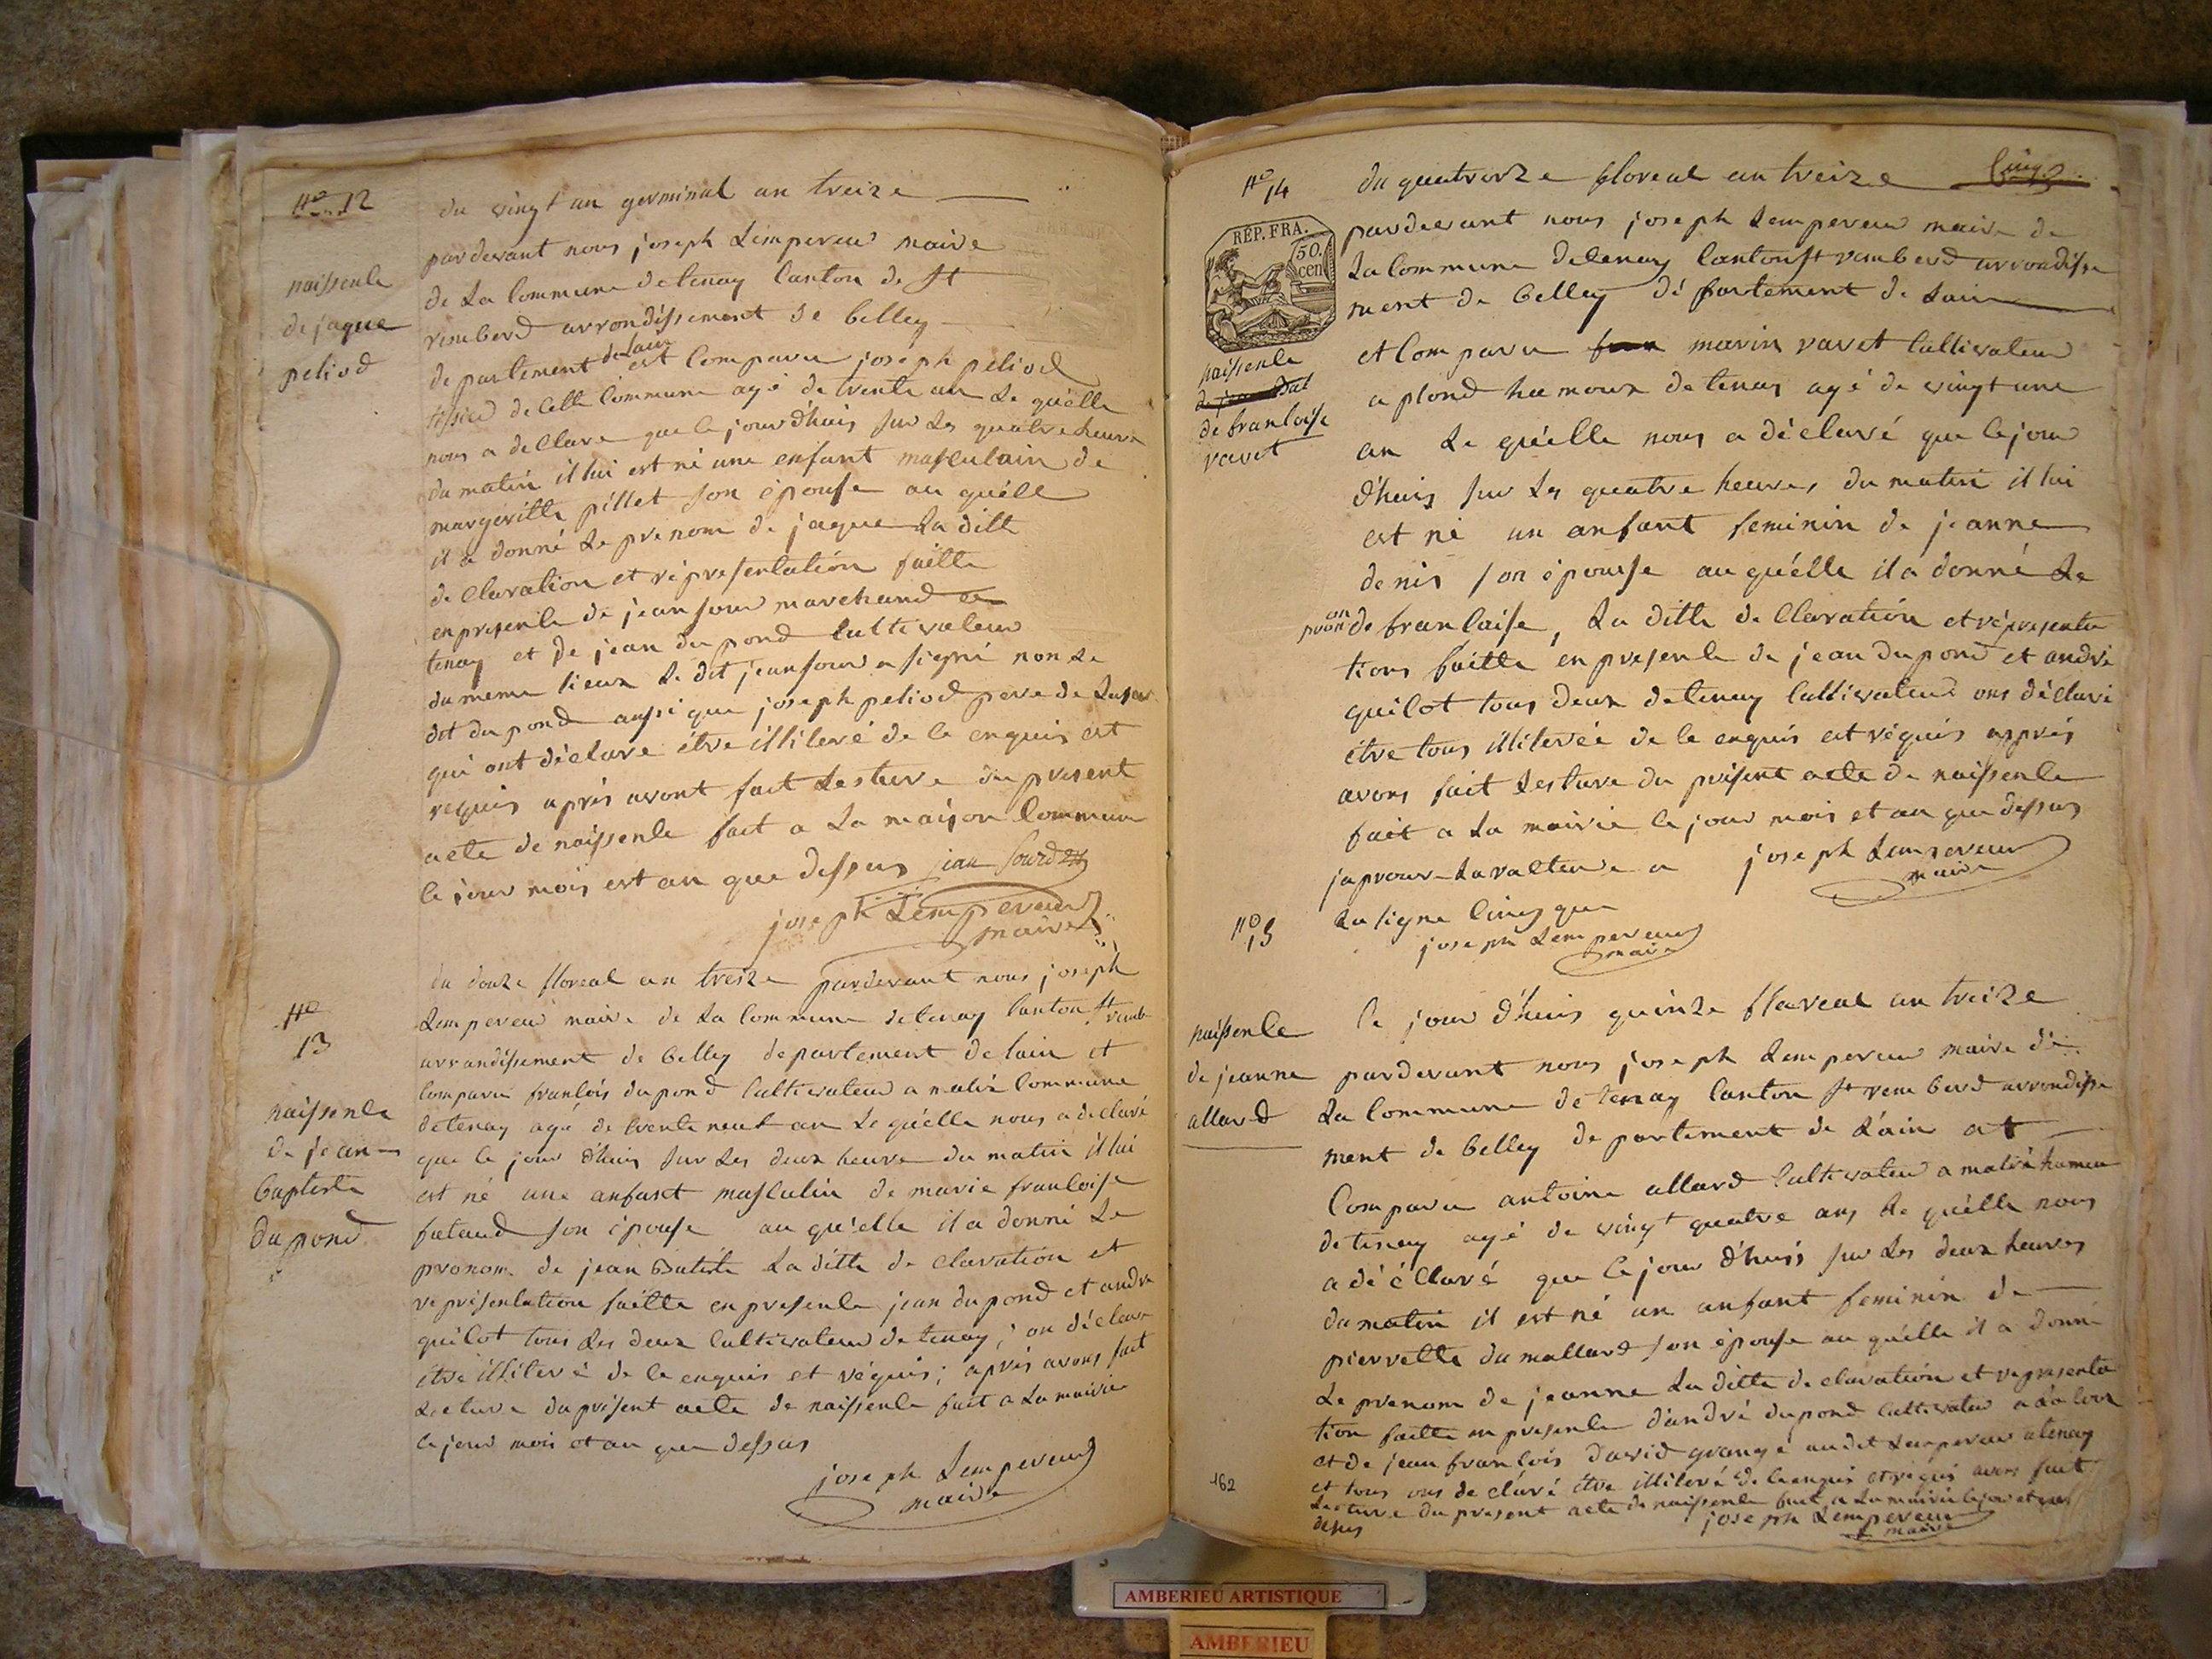 No 12
du vingt un germinal an treize
naissence
de jaque
peliod
pardevant nous joseph Lempereur maire
de La Commune detenay Canton de St
remberd arrondissement de belley
departement de Lain est Comparu joseph peliod
tissieu de Cette Commune agé de trente an Le quélle
nous a declare que le jourdhuis sur Les quatre heure
du matin il lui est né une enfant masculain de
margeritte pillet son épouse au quélle
il a donné Le prenom de jaque La ditte
de Claration et répresentation faitte
en presence de jean sour marchand a
tenay et de jean du pond Cultivateur
du meme lieux Le dit jean sour a signé non Le
dit du pond aussi que joseph peliod pere de
qui ont déclare étre illiteré de ce enquis est
requis aprés avont fait Lesture du present
acte de naissence fait a La maison Commune
le jour mois est an que dessus jean sourd
joseph Lempereur
maire
No
13
naissence
de jean
baptiste
dupond
du douze floreal an treize pardevant nous joseph
Lempereur maire de La Commune detenay Canton St remb
arrondissement de belley departement de lain et
Comparu francois dupond Cultivateur a malix Commune
detenay agé de trente neuf an Le quélle nous a declaré
que le jour d'huis sur Les deux heure du matin il lui
est né une anfant masculin de marie francoise
futaud son épouse au quélle il a donné Le
pronom de jean Batiste La ditte de claration et
représentation faitte en presence jean du pond et andre
quilot tous Les deux Cultivateur de tenay; on déclare
étre illiteré de ce enquis et réquis; aprés avons fait
Lecture du présent acte de naissence fait a La mairie
le jour mois et an que dessus
joseph Lempereur
maire
No 14
du quatorze floreal an treize
Cinq
RÉP. FRA.
50.
cen
naissence
de francoise
ravet
pardevant nous joseph Lempereur maire de
La Commune detenay Canton St remberd arrondisse
ment de belley dé partement de Lain
et Comparu marin ravet Cultivateur
a plond hamoux de tenay agé de vingt une
an Le quélle nous a déclaré que le jour
d'huis sur Les quatre heures du matin il lui
est né un anfant feminin de jeanne
denis son épouse au quélle il a donné Le
pronon de francaise, La ditte de Claration et répresenta
tions faitte en presence de jean dupond et andré
quilot tous deux detenay Cultivateur ons déclaré
étre tous illiterée de ce enquis est réquis apprés
avons fait Lesture du présent acte de naissence
fait a La mairie le jour mois et an que dessus
japrouve La valteur a joseph Lempereur
maire
La ligne Cinq que
joseph Lempereur
maire
No
15
naissence
de jeanne
allard
le jour d'huis quinze flareal an treize
pardevant nous joseph Lempereur maire de
La Commune de tenay Canton St remberd arrondisse
ment de belley departement de L'ain at
Comparu antoine allard Cultivateur a malix hameu
de tenay agé de vingt quatre ans Le quélle nous
a dééClaré que le jour d'huis sur Les deux heures
du matin il est né un anfant feminin de
pierrette du mallard son épouse au quélle il a donné
Le prenom de jeanne La ditte de claration et represénta
tion faitte en presence d'andré dupond Cultivateur
et de jean francois david grangé au dit Lempereur a tenay
et tous ons de claré étre illiteré de ce enquis et réquis avons fait
Lecture du present acte de naissence fait a La mairie le jour et
desus
joseph Lempereur
maire
162
AMBERIEU ARTISTIQUE
AMBERIEU